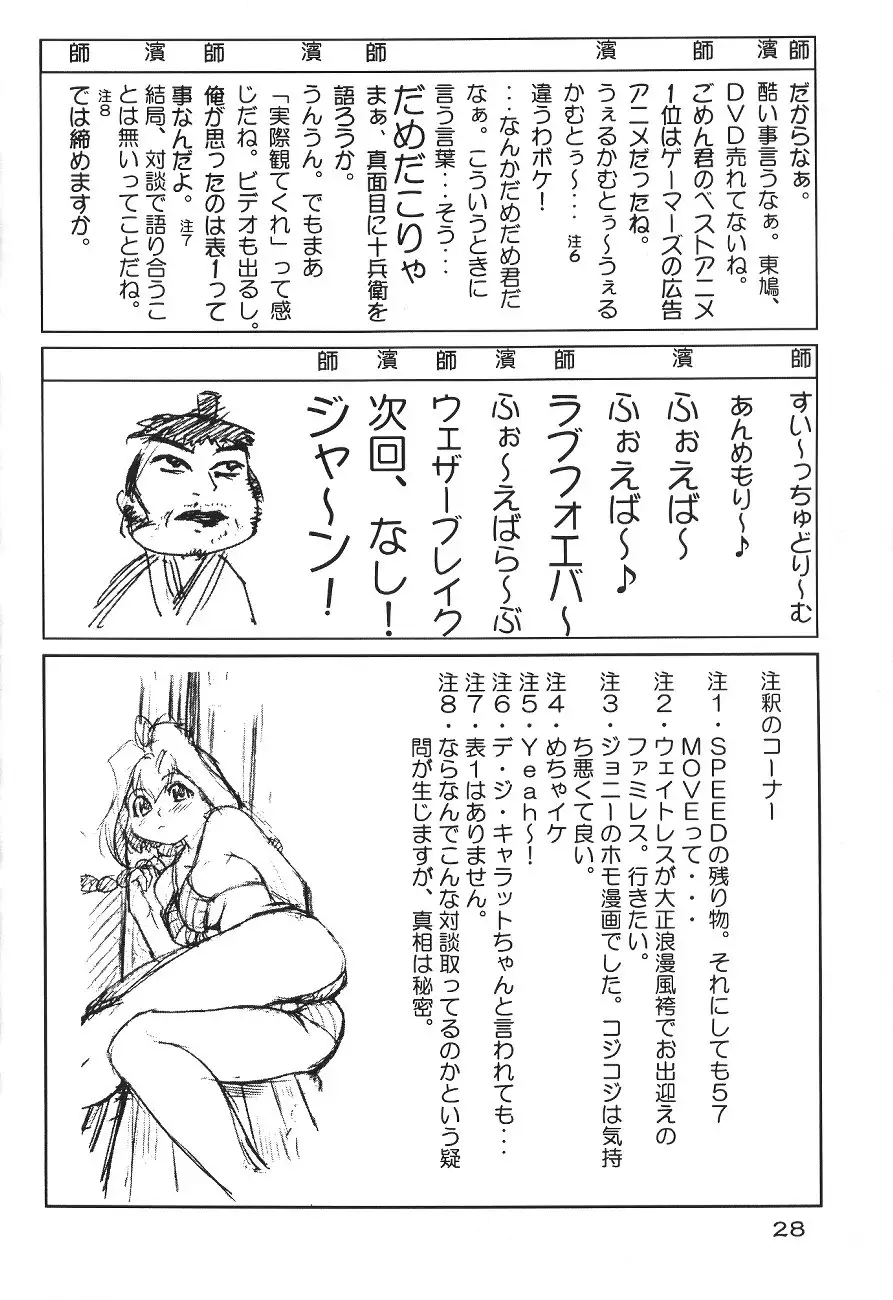 師
濱
師
濱
師
濱
師
濱
師
だからなぁ。
酷い事言うなぁ。東鳩、
DVD売れてないね。
ごめん君のベストアニメ
1位はゲーマーズの広告
アニメだったね。
うぇるかむとぅ〜うぇる
かむとぅ〜・・・ 注6
違うわボケ！
・・なんかだめだめ君だ
なぁ。こういうときに
言う言葉・・・そう・・・
だめだこりゃ
まぁ、真面目に十兵衛を
語ろうか。
うんうん。でもまあ
「実際観てくれ」って感
じだね。ビデオも出るし。
俺が思ったのは表1って
事なんだよ。 注7
結局、対談で語り合うこ
とは無いってことだね。
注8
では締めますか。
師
濱
師
濱
師
濱
師
すい〜っちゅどり〜む
あんめもり〜♪
ふぉえば〜
ふぉえば〜♪
ラブフォエバ〜
ふぉ〜えばら〜ぶ
ウエザーブレイク
次回、なし！
ジャ〜ン！
注釈のコーナー
注1・SPEEDの残り物。それにしても57
MOVEって・・・
注2・ウェイトレスが大正浪漫風袴でお出迎えの
ファミレス。行きたい。
注3・ジョニーのホモ漫画でした。コジコジは気持
ち悪くて良い。
注4・めちゃイケ
注5・Yeah〜！
注6・デ・ジ・キャラットちゃんと言われても・・・
注7・表1はありません。
注8・ならなんでこんな対談取ってるのかという疑
問が生じますが、真相は秘密。
28